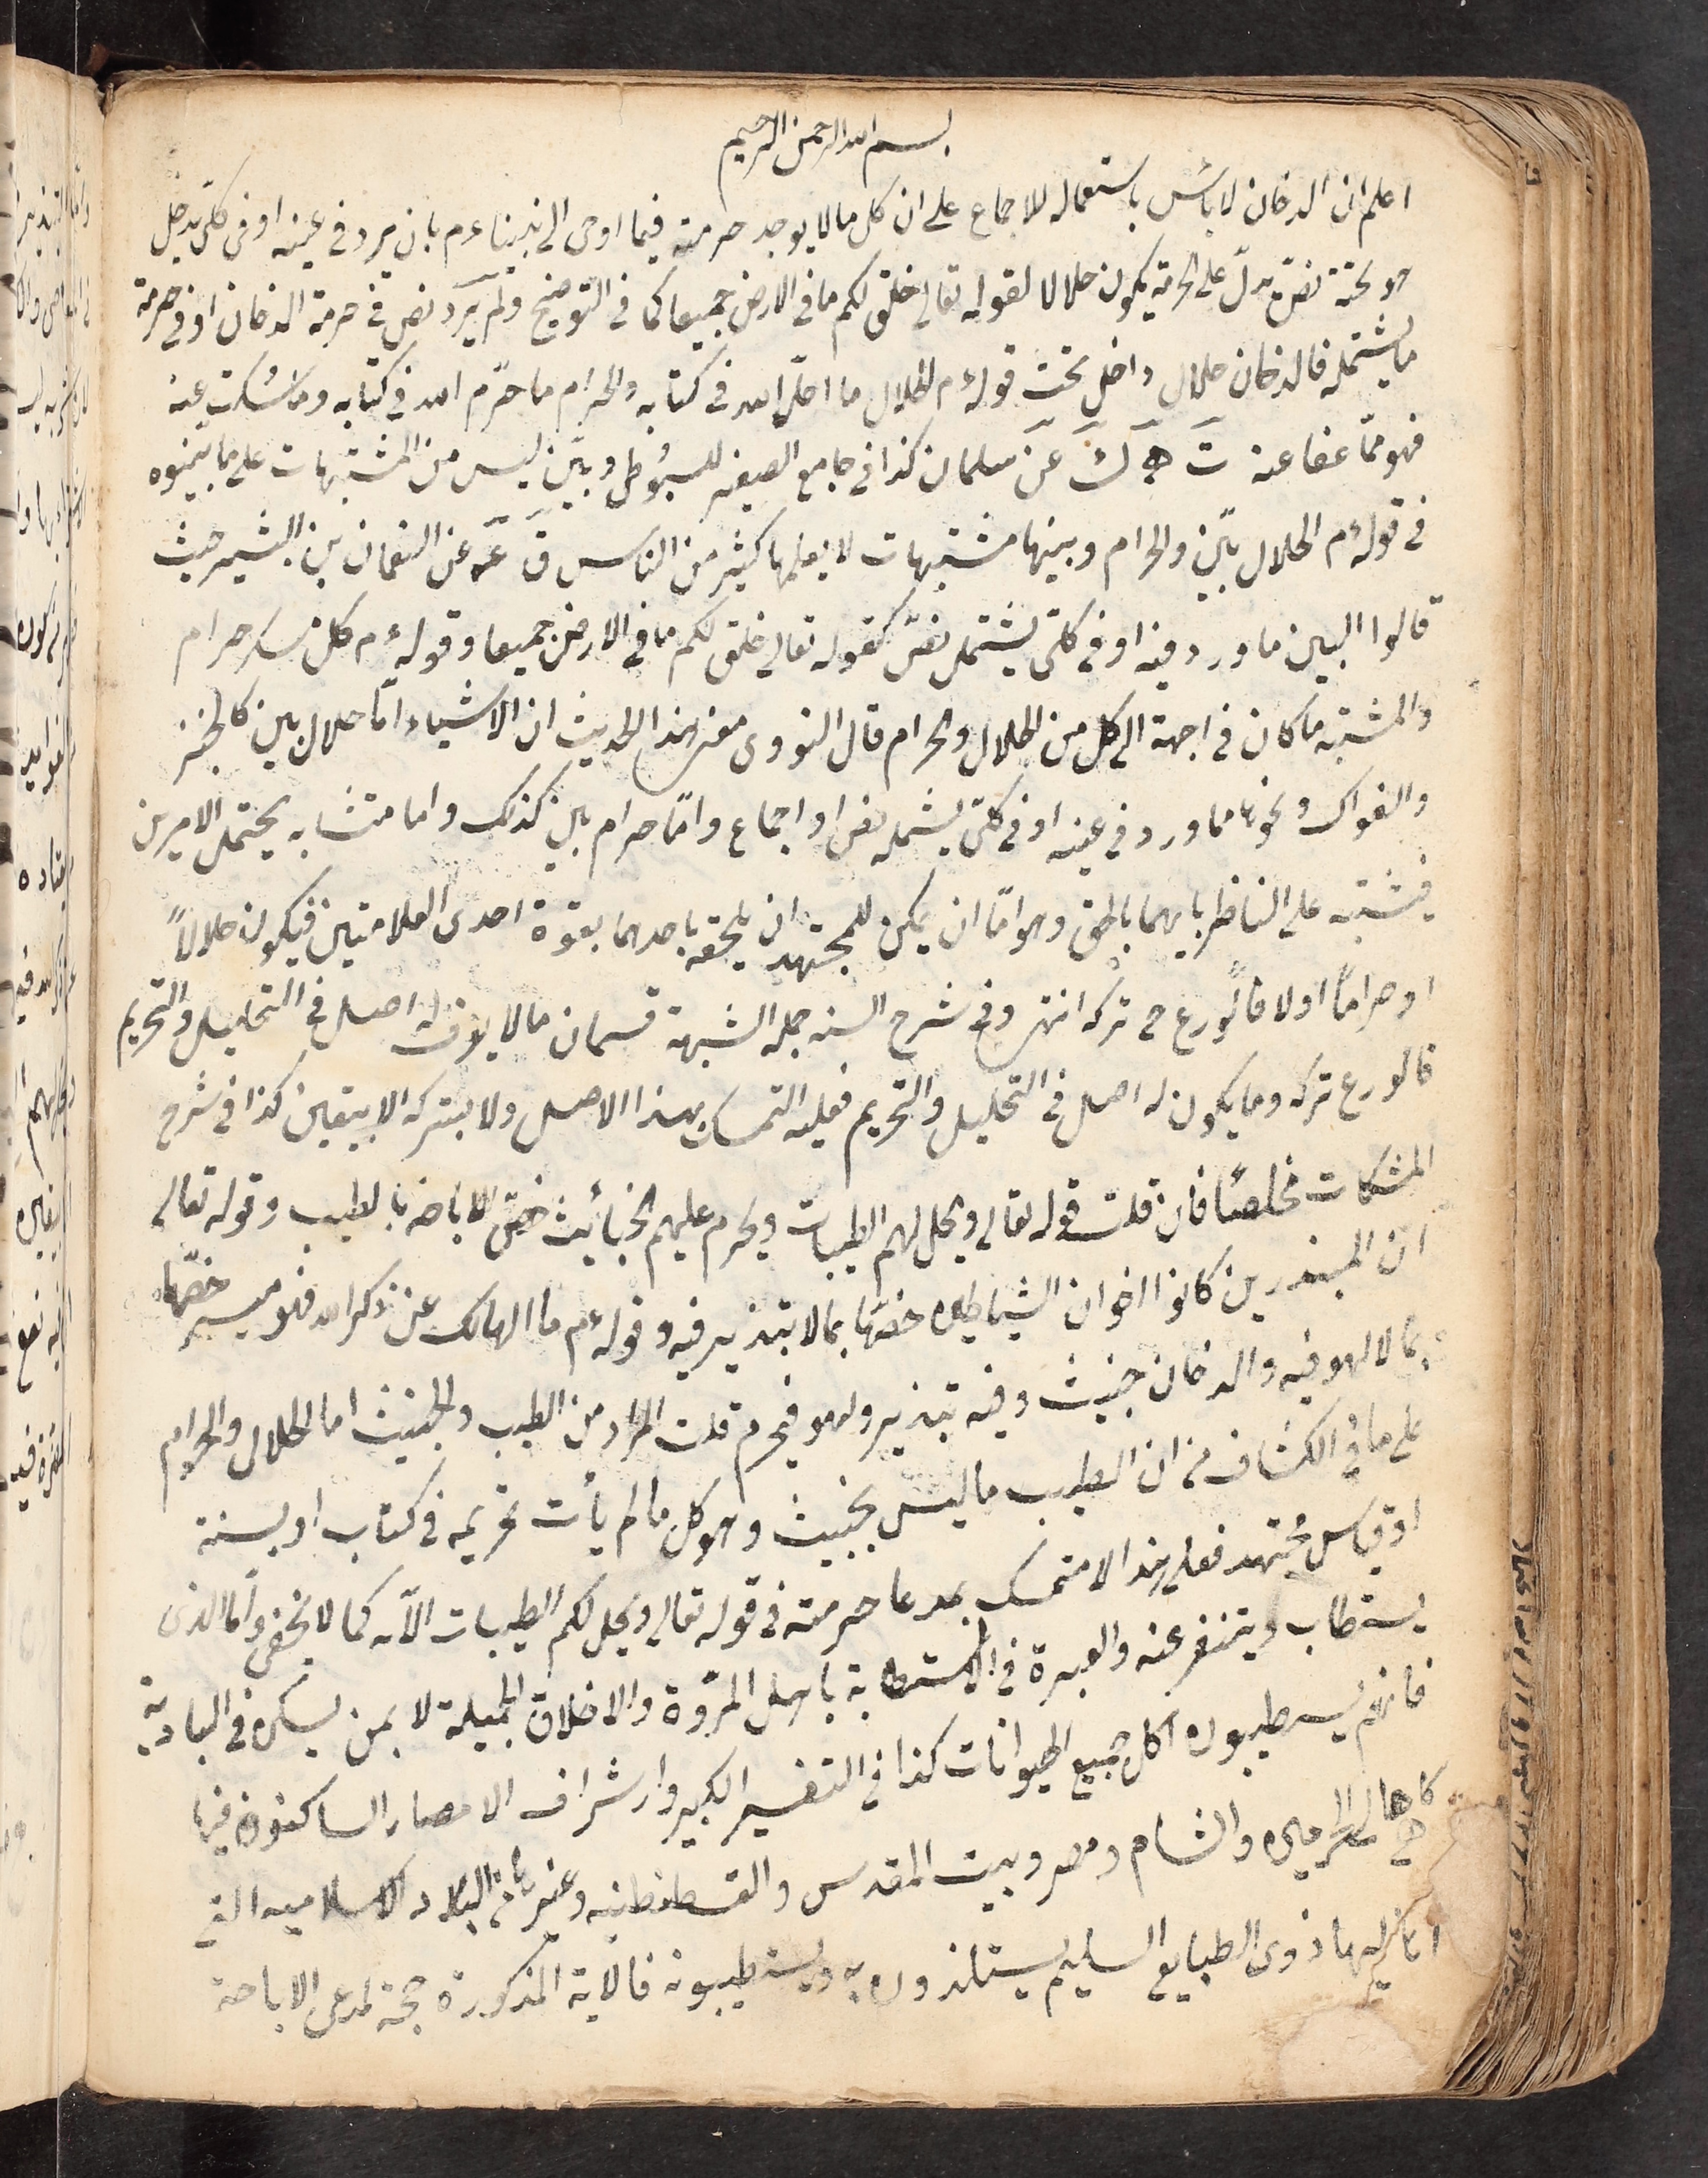 بسم الله الرحمن الرحيم
اعلم ان الدخان لا بائس باستعماله للاجماع على ان كل ما لا يوجد حرمته فيما اوحى الى نبيناءم بان يرد فى عينه او فى كلّى يدخل
هو تحته نصّ يدلّ على الحرمة يكون حلالا لقوله تعالى خلق لكم ما فى الارض جميعا كما فى التوضيح ولم يرد نص فى حرمة الدخان او فى حرمة
ما يشتمله فالدخان حلال داخل تحت قولهءم الحلال ما احلّ الله فى كتابه والحرام ما حرّم الله فى كتابه وما سُكت عنه
فهو ممّا عفا عنه ت ه ك عن سلمان كذا فى جامع الصغير للسيُوطى وبيّن ليس من المشتبهات على ما بينوه
فى قولهءم الحلال بيّن والحرام وبينهما مشتبهات لا يعلمها كثير من الناس ق عه عن النعمان بن البشير حيث
قالوا البين ما ورد فيه او فى كلّى يشتمل نصّ كقوله تعالى خلق لكم ما فى الارض جميعا وقولهءم كل مسكر حرام
والمشتبه ما كان فى اجهة الى كل من الحلال والحرام قال النووى معنى هذا الحديث ان الاشياء امّا حلال بين كالخبز
والفواكه ونحوها مما ورد فى عينه او فى كلىّ يشمله نص او اجماع وامّا حرام بين كذلك واما متشابه يحتمل الامرين
فيشتبه على الناظر بايهما بالحق وهو امّا ان يمكن للمجتهد ان يلحقه باحدهما بقوة احدى العلامتين فيكون حلالاً
او حراماً اولا فالورع ح تركه انتهى وفى شرح السنه جمله الشبهة قسمان ما لا يعرف له اصل فى التحليل والتحريم
فالورع تركه وما يكون له اصل فى التحليل والتحريم فعليه التمسك بهذا الاصل ولا يتركه الا بيقين كذا فى شرح
المشكات مخلصًا فان قلت قوله تعالى ويحل لهم الطيبات ويحرم عليهم الخبائث خصّ الاباحه بالطيب وقوله تعالى
ان المبذرين كانوا اخوان الشياطين خصّها بما لا تبذير فيه وقولهءم ما الهاك عن ذكر الله فهو ميسر خصّها
بما لا لهو فيه والدخان خبيث وفيه تبذير ولهو فيحرم قلت المراد من الطيب والخبيث اما الحلال والحرام
على ما فى الكشاف من ان الطيب ما ليس بخبيث وهو كل ما لم يأت تحريمه فى كتاب او بسنة
او قياس مجتهد فعلى هذا لا متمسك بمدعا حرمته فى قوله تعالى ويحل لكم الطيبات الآيه كما لا يخفى وامّا الذى
يستطاب ويتنفر عنه والعبرة فى الاستطابة باهل المروّة والاخلاق الجميلة لا بمن يسكن فى البادية
فانهم يسطيبون اكل جميع الحيوانات كذا فى التفسير الكبير واشراف الامصار الساكنون فيها
كاهالى الحرمين والشام ومصر وبيت المقدس والقسطنطنيه وغيرها من البلاد الاسلاميه التى
اهاليها ذوى الطبايع السليم يستلذون به ويستطيبونه فالآية المذكورة حجة لمدعى الاباحة